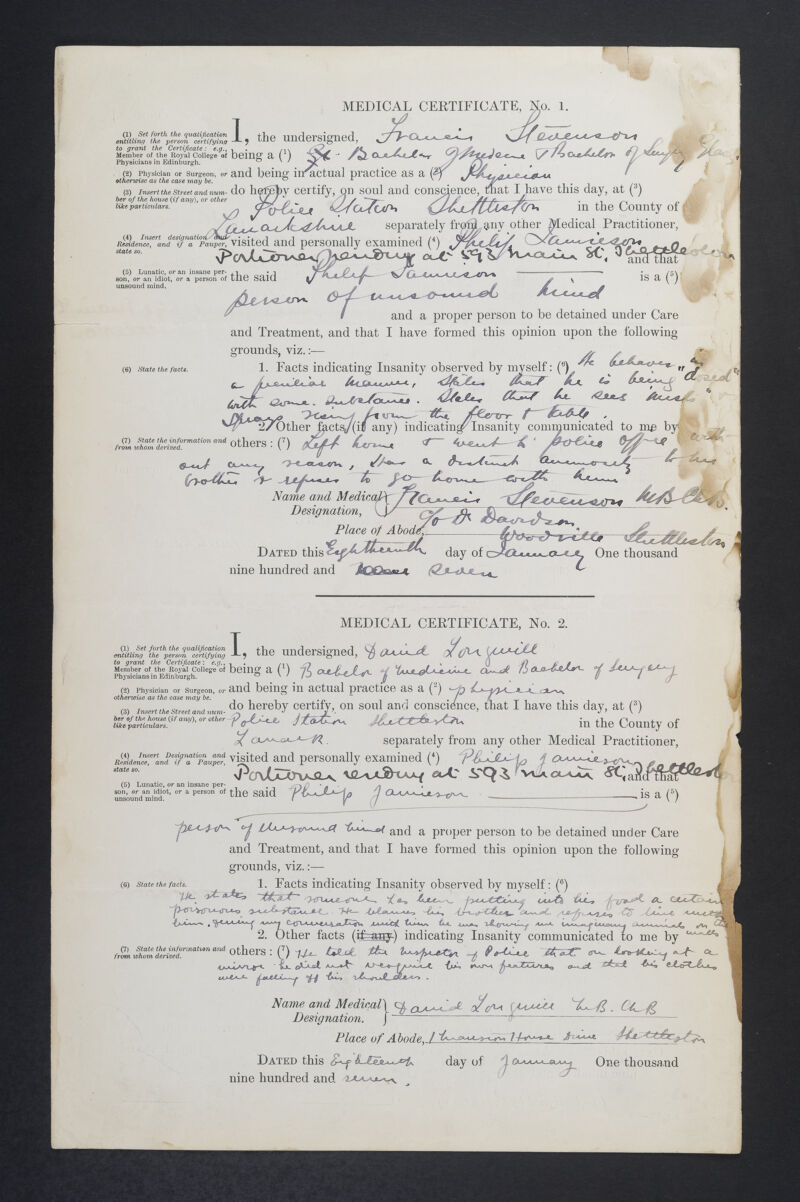 MEDICAL CERTIFICATE, No. 1.
(1) Set forth the qualification
entitling the person certifying
to grant the Certificate: e.g.,
Member of the Royal College of
Physicians in Edinburgh.
I, the undersigned, Francis Stevenson
being a (1) Bachelor of Medicine & Bachelor of Surgery
(2) Physician or Surgeon, or
otherwise as the case may be.
and being in actual practice as a (2) Physician
(3) Insert the Street and num-
ber of the house (if any), or other
like particulars.
do hereby certify, on soul and conscience, that I have this day, at (3)
Police Station Shettleston in the County of
Lanarkshire separately from any other Medical Practitioner,
(4) Insert designation and
Residence, and if a Pauper,
state so.
visited and personally examined (4) Philip Jamieson
Portioner residing at 593 Main St, Shettleston
and that
(5) Lunatic, or an insane per-
son, or an idiot, or a person of
unsound mind.
the said Philip Jamieson is a (5)
person of unsound mind
and a proper person to be detained under Care
and Treatment, and that I have formed this opinion upon the following
grounds, viz.:—
(6) State the facts.
1. Facts indicating Insanity observed by myself: (6) He behaves in
a peculiar manner, states that he is being "dosed"
with some substance. States that he sees
rising from the floor & table.
2. Other facts (if any) indicating Insanity communicated to me by
(7) State the information and
from whom derived.
others: (7) Left home & went to police office with
out any reason, has a distinct animosity to his
brother & refuses to go home with him
Name and Medical
Designation,
Francis Stevenson MB Ch.B.
Place of Abode,
c/o Dr Davidson
Woodville Shettleston
DATED this Eighteenth day of January One thousand
nine hundred and seven
MEDICAL CERTIFICATE, No. 2.
(1) Set forth the qualification
entitling the person certifying
to grant the Certificate: e.g.,
Member of the Royal College of
Physicians in Edinburgh.
I, the undersigned, David Longwill
being a (1) Bachelor of Medicine and Bachelor of Surgery
(2) Physician or Surgeon, or
otherwise as the case may be.
and being in actual practice as a (2) physician
(3) Insert the Street and num-
ber of the house (if any), or other
like particulars.
do hereby certify, on soul and conscience, that I have this day, at (3)
Police Station Shettleston in the County of
Lanark separately from any other Medical Practitioner,
(4) Insert Designation and
Residence, and if a Pauper,
state so.
visited and personally examined (4) Philip Jamieson
Portioner residing at 593 Main St, Shettleston
and that
(5) Lunatic, or an insane per-
son, or an idiot, or a person of
unsound mind.
the said Philip Jamieson is a (5)
person of Unsound mind and a proper person to be detained under Care
and Treatment, and that I have formed this opinion upon the following
grounds, viz.:—
(6) State the facts.
1. Facts indicating Insanity observed by myself: (6)
He states that someone has been putting into his food a certain
poisonous substance. He blames his brother and refuses to live with
him. During my conversation with him he was showing me imaginary animals on the
walls
2. Other facts (if any) indicating Insanity communicated to me by
(7) State the information and
from whom derived.
others: (7) He told the Inspector of Police that on looking at a
mirror he did not recognise his own features and that his clothes
were falling off his shoulders.
Name and Medical
Designation.
David Longwill M.B. Ch.B
Place of Abode, 1 Mansion House Drive Shettleston
DATED this Eighteenth day of January One thousand
nine hundred and seven.